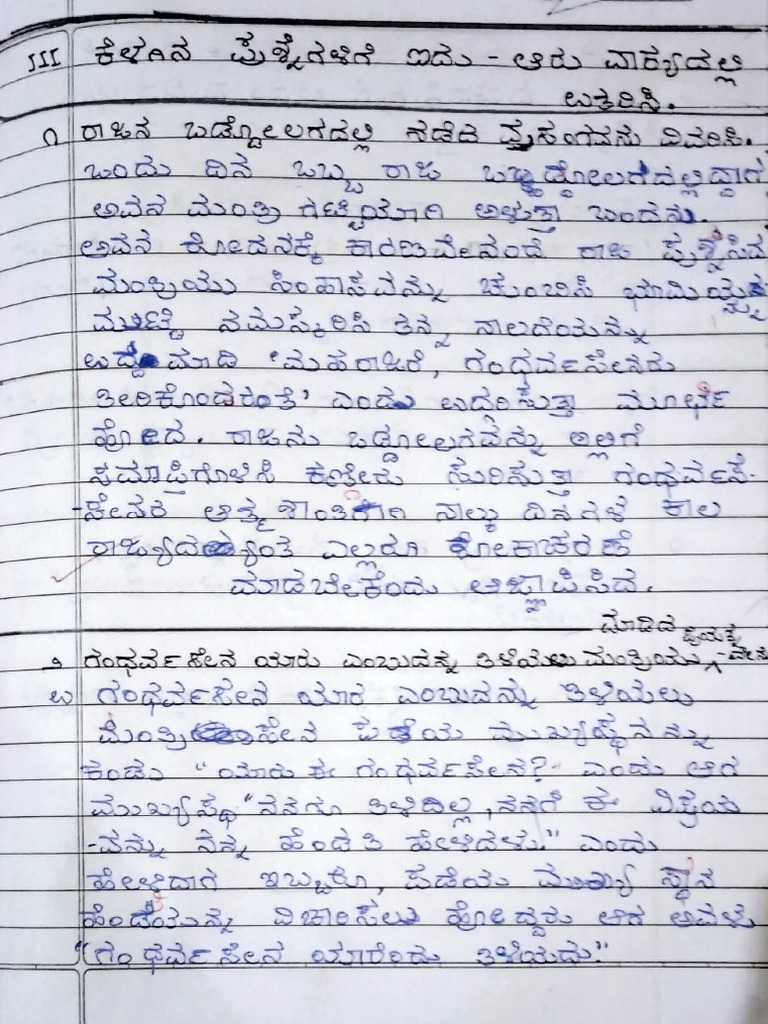 III ಕೆಳಗಿನ ಪ್ರಶ್ನೆಗಳಿಗೆ ಐದು - ಆರು ವಾಕ್ಯದಲ್ಲಿ
ಉತ್ತರಿಸಿ.
೧ ರಾಜನ ಒಡ್ಡೋಲಗದಲ್ಲಿ ನಡೆದ ಪ್ರಸಂಗವನು ವಿವರಿಸಿ.
ಒಂದು ದಿನ ಒಬ್ಬ ರಾಜ ಒಡ್ಡೋಲಗದಲ್ಲಿದ್ದಾಗ
ಅವನ ಮಂತ್ರಿ ಗಟ್ಟಿಯಾಗಿ ಅಳುತ್ತಾ ಬಂದನು.
ಅವನ ರೋದನಕ್ಕೆ ಕಾರಣವೇನೆಂದೆ ರಾಜ ಪ್ರಶ್ನಿಸಿದ
ಮಂತ್ರಿಯು ಸಿಂಹಾಸವನ್ನು ಚುಂಬಿಸಿ ಭೂಮಿಯನ್ನು
ಮುಟ್ಟಿ ನಮಸ್ಕರಿಸಿ ತನ್ನ ನಾಲಗೆಯನ್ನು
ಉದ್ದ ಮಾಡಿ 'ಮಹರಾಜರೆ, ಗಂಧರ್ವಸೇನರು
ತೀರಿಕೊಂಡರಂತೆ' ಎಂದು ಉದ್ಗರಿಸುತ್ತಾ ಮೂರ್ಛೆ
ಹೋದ. ರಾಜನು ಒಡ್ಡೋಲಗವನ್ನು ಅಲ್ಲಿಗೆ
ಸಮಾಪ್ತಿಗೊಳಿಸಿ ಕಣ್ಣೀರು ಸುರಿಸುತ್ತಾ ಗಂಧರ್ವಸೆ-
-ಸೇನರ ಆತ್ಮಶಾಂತಿಗಾಗಿ ನಾಲ್ಕು ದಿನಗಳ ಕಾಲ
ರಾಜ್ಯದಾದ್ಯಂತ ಎಲ್ಲರೂ ಶೋಕಾಚರಣೆ
ಮಾಡಬೇಕೆಂದು ಆಜ್ಞಾಪಿಸಿದ.
ಮಾಡಿದ ಪ್ರಯತ್ನ
೨ ಗಂಧರ್ವಸೇನ ಯಾರು ಎಂಬುದನ್ನು ತಿಳಿಯಲು ಮಂತ್ರಿಯು -ವೇನು
ಉ ಗಂಧರ್ವಸೇನ ಯಾರ ಎಂಬುವನ್ನು ತಿಳಿಯಲು
ಮಂತ್ರಿ ಸೇನ ಪಡೆಯ ಮುಖ್ಯಸ್ಥನನ್ನು
ಕಂಡು "ಯಾರು ಈ ಗಂಧರ್ವಸೇನ?" ಎಂದು ಆಗ
ಮುಖ್ಯಸ್ಥ "ನನಗೂ ತಿಳಿದಿಲ್ಲ, ನನಗೆ ಈ ವಿಶ್ರಯ
-ವನ್ನು ನನ್ನ ಹೆಂಡತಿ ಹೇಳಿದಳು." ಎಂದು
ಹೇಳಿದಾಗ ಇಬ್ಬರೂ, ಪಡೆಯ ಮುಖ್ಯ ಸ್ಥಾನ
ಹೆಂಡತಿಯನ್ನು ವಿಚಾರಿಸಲು ಹೋದ್ದರು ಆಗ ಅವಳು
"ಗಂಧರ್ವಸೇನ ಯಾರೆಂದು ತಿಳಿಯದು."